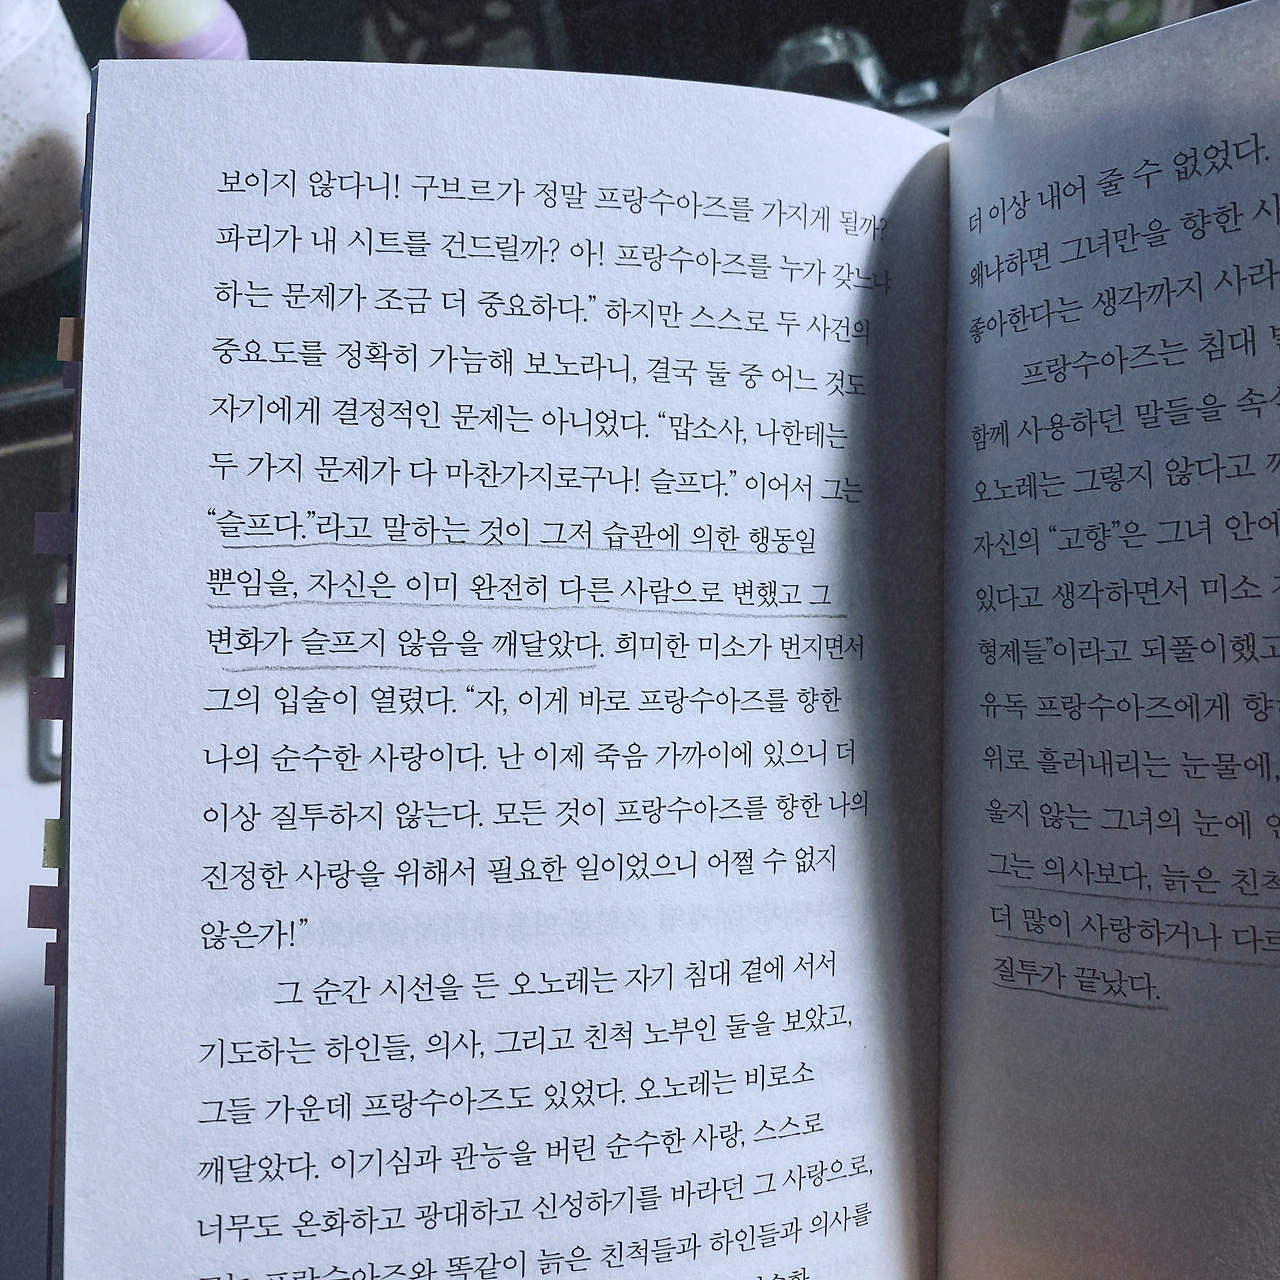 보이지 않다니! 구브르가 정말 프랑수아즈를 가지게 될까?
파리가 내 시트를 건드릴까? 아! 프랑수아즈를 누가 갖느냐
하는 문제가 조금 더 중요하다.” 하지만 스스로 두 사건의
중요도를 정확히 가늠해 보노라니, 결국 둘 중 어느 것도
자기에게 결정적인 문제는 아니었다. “맙소사, 나한테는
두 가지 문제가 다 마찬가지로구나! 슬프다.” 이어서 그는
“슬프다.”라고 말하는 것이 그저 습관에 의한 행동일
뿐임을, 자신은 이미 완전히 다른 사람으로 변했고 그
변화가 슬프지 않음을 깨달았다. 희미한 미소가 번지면서
그의 입술이 열렸다. “자, 이게 바로 프랑수아즈를 향한
나의 순수한 사랑이다. 난 이제 죽음 가까이에 있으니 더
이상 질투하지 않는다. 모든 것이 프랑수아즈를 향한 나의
진정한 사랑을 위해서 필요한 일이었으니 어쩔 수 없지
않은가!”
그 순간 시선을 든 오노레는 자기 침대 곁에 서서
기도하는 하인들, 의사, 그리고 친척 노부인 둘을 보았고,
그들 가운데 프랑수아즈도 있었다. 오노레는 비로소
깨달았다. 이기심과 관능을 버린 순수한 사랑, 스스로
너무도 온화하고 광대하고 신성하기를 바라던 그 사랑으로,
프랑수아즈와 똑같이 늙은 친척들과 하인들과 의사를
더 이상 내어 줄 수 없었다.
왜냐하면 그녀만을 향한
좋아한다는 생각까지
프랑수아즈는 침대
함께 사용하던 말들을
오노레는 그렇지 않다고
자신의 “고향”은 그녀
있다고 생각하면서 미소
형제들”이라고 되풀이했고
유독 프랑수아즈에게
위로 흘러내리는 눈물에,
울지 않는 그녀의 눈에
그는 의사보다, 늙은
더 많이 사랑하거나
질투가 끝났다.